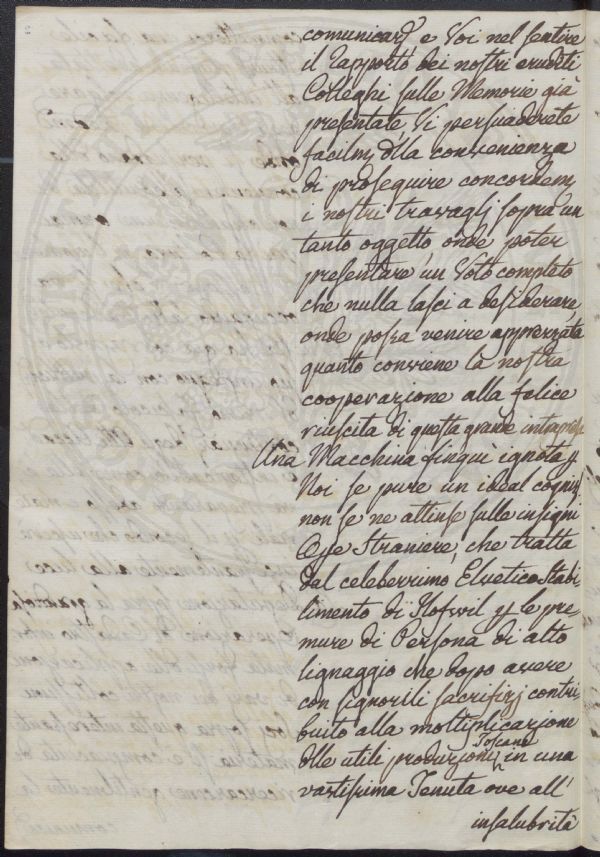 comunicarci e Voi nel sentire
il rapporto dei nostri eruditi
Colleghi sulle Memorie già
presentate, Vi persuaderete
facilm dlla convenienza
di proseguire concordem
i nostri travaglj sopra un
tanto oggetto onde poter
presentare un Voto completo
che nulla lasci a desiderare
onde possa venire apprezzata
quanto conviene la nostra
cooperazione alla felice
riuscita di questa grande intrapresa
Una Macchina finqui ignota p
Noi se pure un ideal cogniz
non se ne attinse sulle insigni
Oper Straniere, che tratta
dal celeberrimo Elvetico Stabi
limento di Hofwil p le pre
mure di Persona di alto
lignaggio che dopo avere
con signorili sacrifizj contri
buito alla moltiplicazione
dlle utili produzioni Toscane in una
vastissima Tenuta ove all'
insalubrità